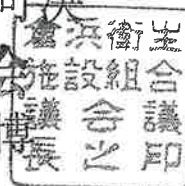 倉浜衛生
施設組合
議会議
長之印